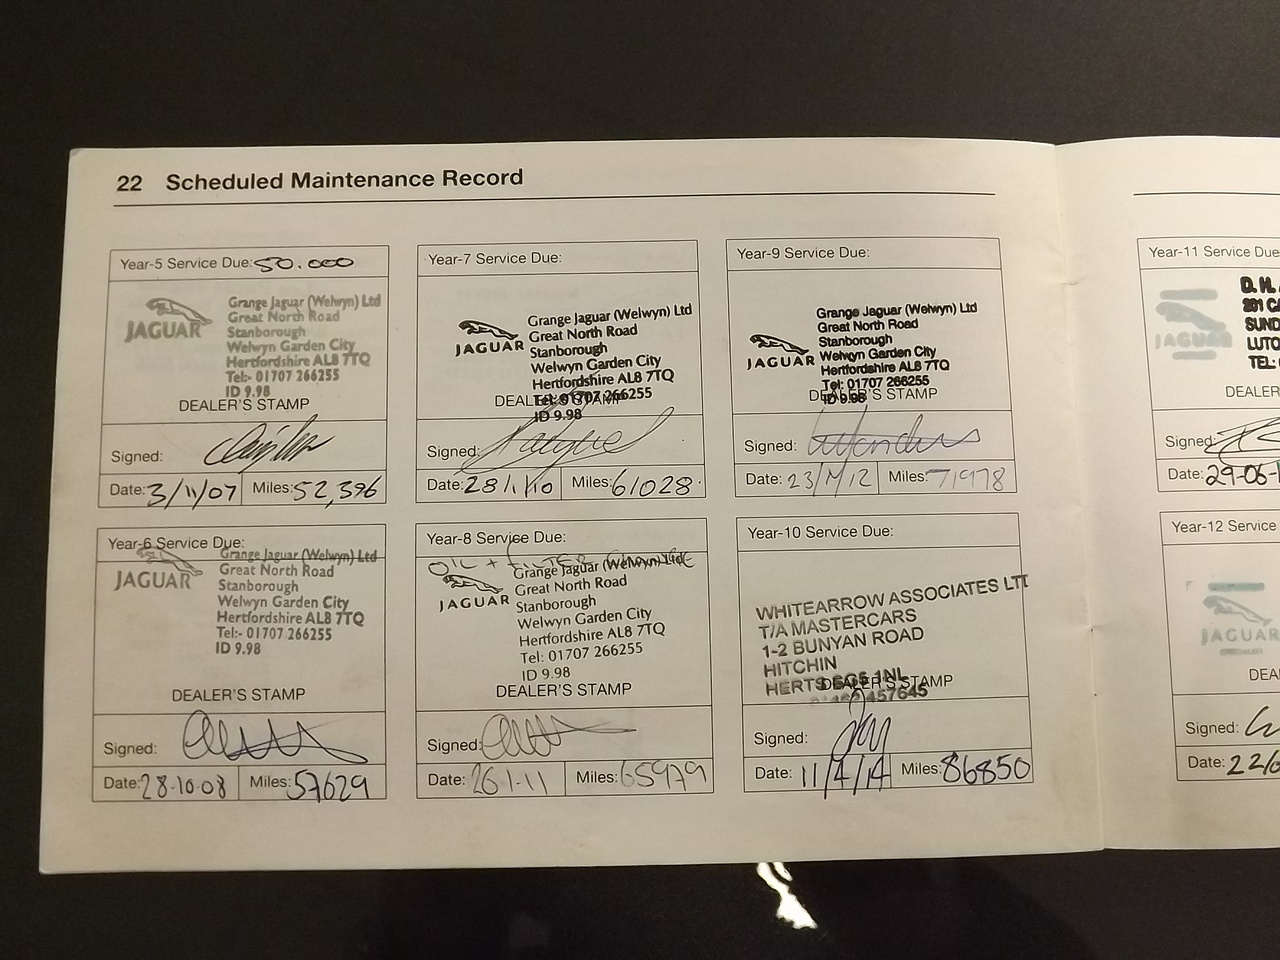 22 Scheduled Maintenance Record
Year-5 Service Due: 50.000
JAGUAR
Grange Jaguar (Welwyn) Ltd
Great North Road
Stanborough
Welwyn Garden City
Hertfordshire AL8 7TQ
Tel:- 01707 266255
ID 9.98
DEALER'S STAMP
Signed:
Date: 3/11/07 Miles: 52,396
Year-6 Service Due:
JAGUAR
Grange Jaguar (Welwyn) Ltd
Great North Road
Stanborough
Welwyn Garden City
Hertfordshire AL8 7TQ
Tel:- 01707 266255
ID 9.98
DEALER'S STAMP
Signed:
Date: 28-10-08 Miles: 57629
Year-7 Service Due:
JAGUAR
Grange Jaguar (Welwyn) Ltd
Great North Road
Stanborough
Welwyn Garden City
Hertfordshire AL8 7TQ
Tel: 01707 266255
ID 9.98
DEALER'S STAMP
Signed:
Date: 28/1/10 Miles: 61028
Year-8 Service Due:
OIL + FILTER CHANGE
JAGUAR
Grange Jaguar (Welwyn) Ltd
Great North Road
Stanborough
Welwyn Garden City
Hertfordshire AL8 7TQ
Tel: 01707 266255
ID 9.98
DEALER'S STAMP
Signed:
Date: 26-1-11 Miles: 65979
Year-9 Service Due:
JAGUAR
Grange Jaguar (Welwyn) Ltd
Great North Road
Stanborough
Welwyn Garden City
Hertfordshire AL8 7TQ
Tel: 01707 266255
ID 9.98
DEALER'S STAMP
Signed:
Date: Miles: 71978
Year-10 Service Due:
WHITEARROW ASSOCIATES LTD
T/A MASTERCARS
1-2 BUNYAN ROAD
HITCHIN
HERTS SG5 1NL
DEALER'S STAMP
Signed:
Date: 11/4/14 Miles: 86850
Year-11 Service Due:
JAGUAR
D. H.
291 CA
SUND
LUTO
TEL:
DEALER
Signed:
Date: 29-06-1
Year-12 Service
JAGUAR
SPECIALIST
DEA
Signed:
Date: 22/6